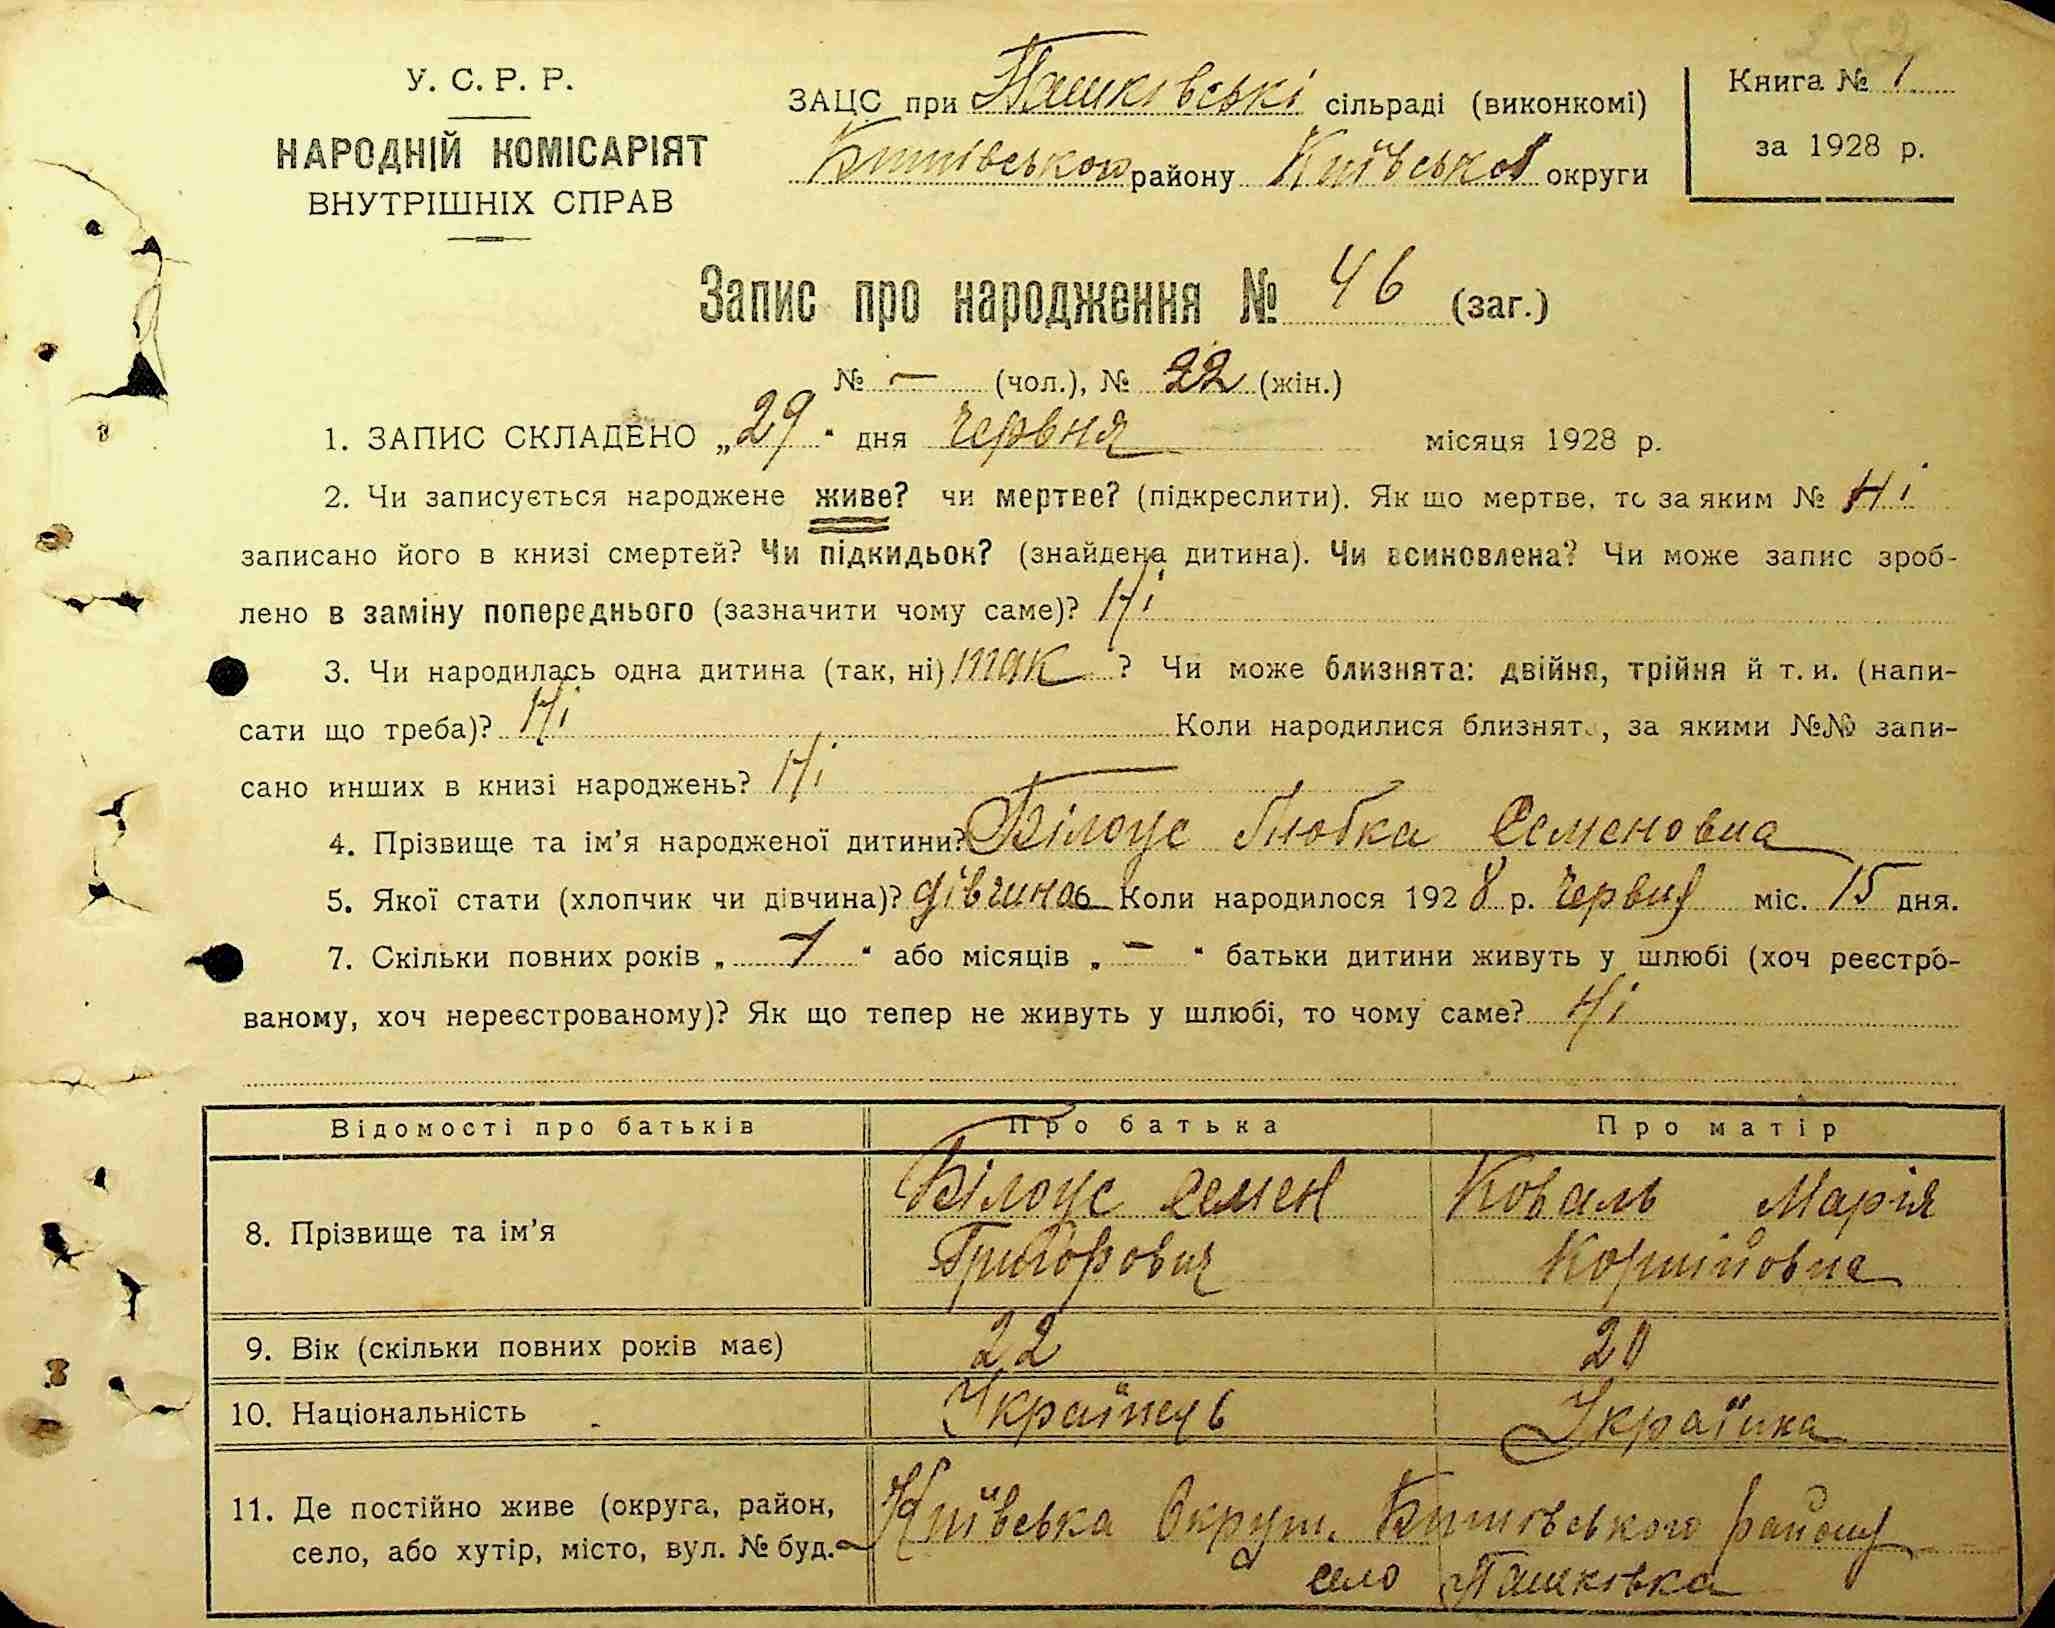 У. С. Р. Р.
НАРОДНІЙ КОМІСАРІЯТ
ВНУТРІШНІХ СПРАВ
ЗАЦС при Пашківські сільраді (виконкомі)
Бишівського району Київської округи
Книга № 1
за 1928 р.
Запис про народження № 46 (заг.)
№ – (чол.), № 22 (жін.)
1. ЗАПИС СКЛАДЕНО „29“ дня червня місяця 1928 р.
2. Чи записується народжене живе? чи мертве? (підкреслити). Як що мертве, то за яким № Ні
записано його в книзі смертей? Чи підкидьок? (знайдена дитина). Чи всиновлена? Чи може запис зроб-
лено в заміну попереднього (зазначити чому саме)? Ні
3. Чи народилась одна дитина (так, ні) так ? Чи може близнята: двійня, трійня й т. и. (напи-
сати що треба)? Ні Коли народилися близнята, за якими №№ запи-
сано инших в книзі народжень? Ні
4. Прізвище та ім’я народженої дитини? Білоус Любка Семеновна
5. Якої стати (хлопчик чи дівчина)? дівчина 6 Коли народилося 1928 р. червня міс. 15 дня.
7. Скільки повних років „ 1 “ або місяців „ – “ батьки дитини живуть у шлюбі (хоч реєстро-
ваному, хоч нереєстрованому)? Як що тепер не живуть у шлюбі, то чому саме? Ні
Відомості про батьків Про батька Про матір
8. Прізвище та ім’я Білоус Семен Григорович Коваль Марія Корніївна
9. Вік (скільки повних років має) 22 20
10. Національність Українець Українка
11. Де постійно живе (округа, район, Київська Округи. Бишівського району
село, або хутір, місто, вул. № буд. село Пашківка